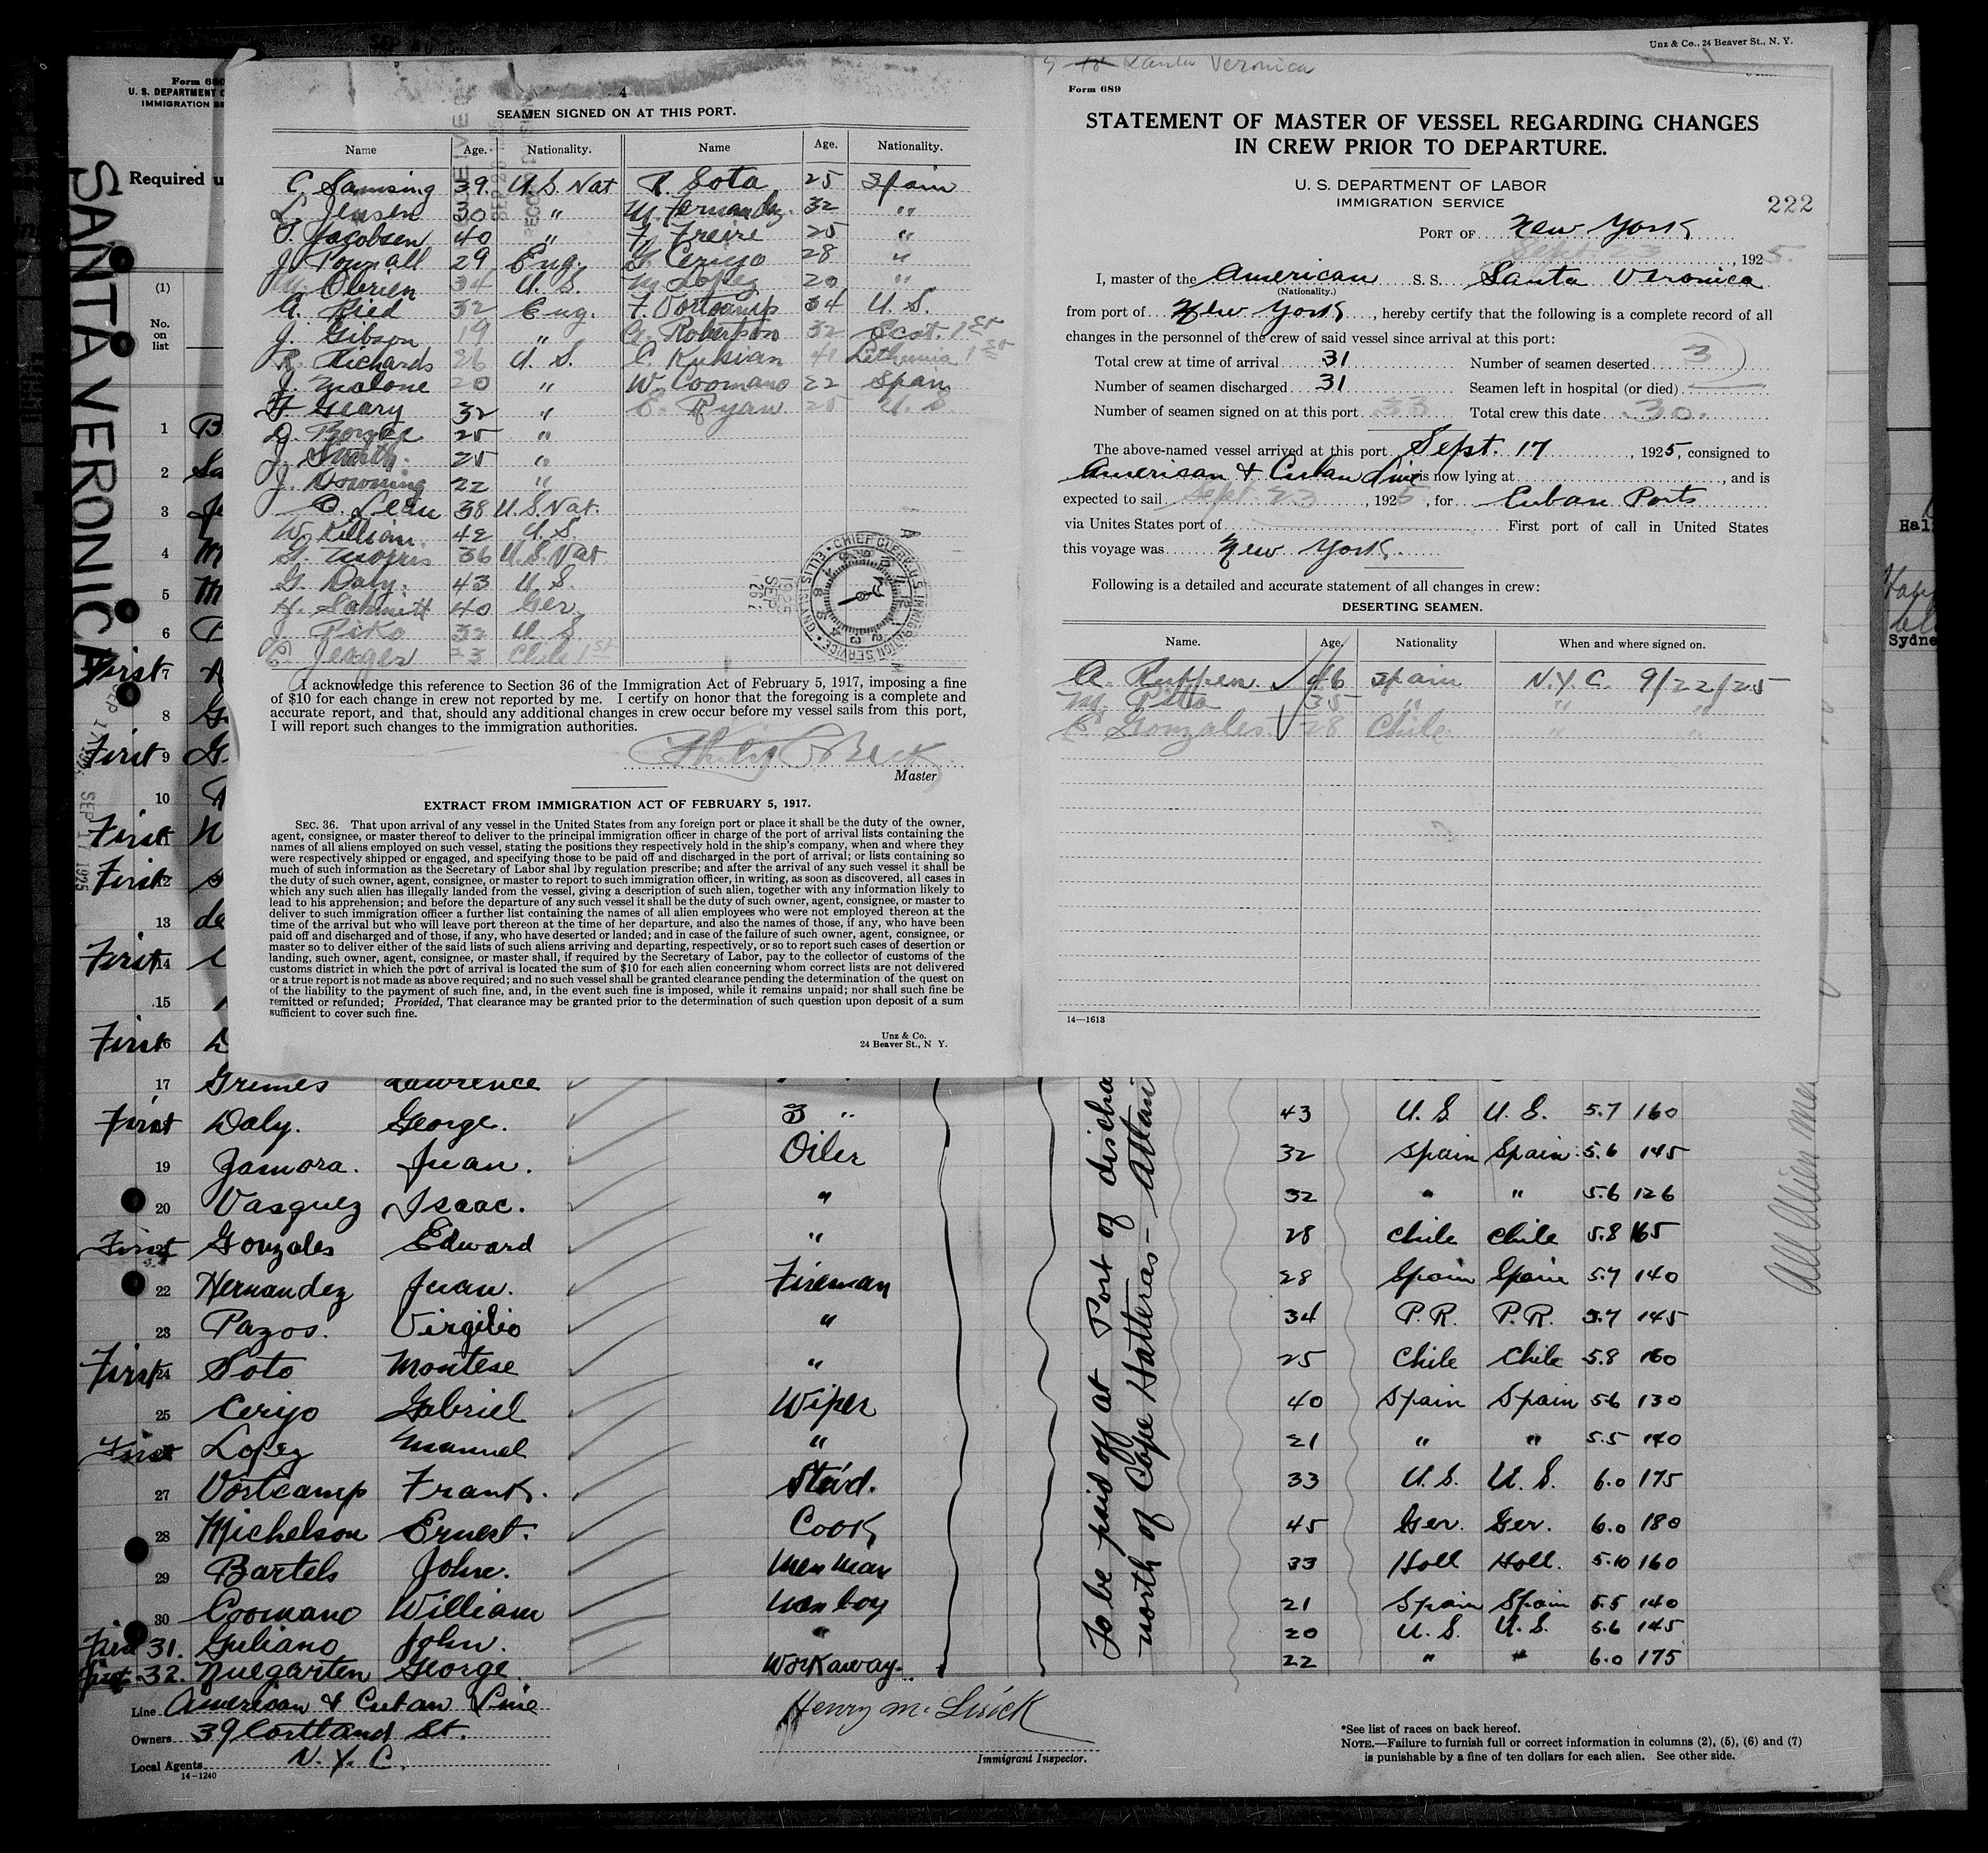 Unz & Co., 24 Beaver St., N. Y.
SANTA VERONICA
Form 680
U. S. DEPARTMENT
IMMIGRATION
Required
(1)
No. on list
4
SEAMEN SIGNED ON AT THIS PORT.
Name Age. Nationality. Name Age. Nationality.
C. Samsing 39 U.S. Nat R. Sota 25 Spain
L. Jensen 30 " M. Fernandez. 32 "
Jacobsen 40 " F. Freire 25 "
J. Pownall 29 Eng. G. Cerijo 28 "
M. Obrien 34 U.S. M Lopez 20 "
A. Ried 32 Eng. F. Vortcamp 34 U.S.
J. Gibson 19 " A. Robertson 32 Scot. 1st
R. Richards 26 U.S. 41 Lithunia 1st
J. Malone 20 " W. Coomano 22 Spain
F. Geary 32 " E. Ryan 25 U.S.
25 "
J. Smith. 25 "
J. Downing 22 "
38 U.S. Nat.
W. Killian. 42 U.S.
G. Morris 36 U.S. Nat
G. Daly. 43 U.S.
H. Schmitt 40 Ger
Piko 32 U.S.
Jeager 23 Chile 1st
CHIEF CLERK U.S. IMMIGRATION SERVICE ELLIS ISLAND, N.Y.
1925 SEP 26
I acknowledge this reference to Section 36 of the Immigration Act of February 5, 1917, imposing a fine
of $10 for each change in crew not reported by me. I certify on honor that the foregoing is a complete and
accurate report, and that, should any additional changes in crew occur before my vessel sails from this port,
I will report such changes to the immigration authorities.
Philip C Beck
Master
EXTRACT FROM IMMIGRATION ACT OF FEBRUARY 5, 1917.
SEC. 36. That upon arrival of any vessel in the United States from any foreign port or place it shall be the duty of the owner,
agent, consignee, or master thereof to deliver to the principal immigration officer in charge of the port of arrival lists containing the
names of all aliens employed on such vessel, stating the positions they respectively hold in the ship's company, when and where they
were respectively shipped or engaged, and specifying those to be paid off and discharged in the port of arrival; or lists containing so
much of such information as the Secretary of Labor shal lby regulation prescribe; and after the arrival of any such vessel it shall be
the duty of such owner, agent, consignee, or master to report to such immigration officer, in writing, as soon as discovered, all cases in
which any such alien has illegally landed from the vessel, giving a description of such alien, together with any information likely to
lead to his apprehension; and before the departure of any such vessel it shall be the duty of such owner, agent, consignee, or master to
deliver to such immigration officer a further list containing the names of all alien employees who were not employed thereon at the
time of the arrival but who will leave port thereon at the time of her departure, and also the names of those, if any, who have been
paid off and discharged and of those, if any, who have deserted or landed; and in case of the failure of such owner, agent, consignee, or
master so to deliver either of the said lists of such aliens arriving and departing, respectively, or so to report such cases of desertion or
landing, such owner, agent, consignee, or master shall, if required by the Secretary of Labor, pay to the collector of customs of the
customs district in which the port of arrival is located the sum of $10 for each alien concerning whom correct lists are not delivered
or a true report is not made as above required; and no such vessel shall be granted clearance pending the determination of the quest on
of the liability to the payment of such fine, and, in the event such fine is imposed, while it remains unpaid; nor shall such fine be
remitted or refunded; Provided, That clearance may be granted prior to the determination of such question upon deposit of a sum
sufficient to cover such fine.
Unz & Co.
24 Beaver St., N Y.
Santa Veronica
Form 689
STATEMENT OF MASTER OF VESSEL REGARDING CHANGES
IN CREW PRIOR TO DEPARTURE.
U. S. DEPARTMENT OF LABOR
IMMIGRATION SERVICE
222
PORT OF New York
Sept. 23, 1925.
I, master of the American S. S. Santa Veronica
(Nationality.)
from port of New York, hereby certify that the following is a complete record of all
changes in the personnel of the crew of said vessel since arrival at this port:
Total crew at time of arrival 31 Number of seamen deserted 3
Number of seamen discharged 31 Seamen left in hospital (or died)
Number of seamen signed on at this port 33 Total crew this date 30.
The above-named vessel arrived at this port Sept. 17, 1925, consigned to
American & Cuban Line is now lying at , and is
expected to sail Sept. 23, 1925, for Cuban Ports
via Unites States port of First port of call in United States
this voyage was New York.
Following is a detailed and accurate statement of all changes in crew:
DESERTING SEAMEN.
Name. Age. Nationality When and where signed on.
A. Ruppen. 46 Spain N.Y.C. 9/22/25
M. Pitta 35 " " "
E Gonzales 28 Chile " "
14—1613
1 B
2 Sa
3 J
4 M
5 M
6 P
First 7
8 G
First 9 G
10
First 11
First 12
13 de
First 14
15
First 16
SEP 17 1925
17 Grimes Lawrence
First Daly. George. 3 " 43 U.S. U.S. 5.7 160
19 Zamora. Juan. Oiler 32 Spain Spain 5.6 145
20 Vasquez Isaac. " 32 " " 5.6 126
First Gonzales Edward " 28 Chile Chile 5.8 165
22 Hernandez Juan. Fireman 28 Spain Spain 5.7 140
23 Pazos. Virgilio " 34 P.R. P.R. 5.7 145
First 24 Soto Montese " 25 Chile Chile 5.8 160
25 Cerijo Gabriel Wiper 40 Spain Spain 5.6 130
First Lopez Manuel " 21 " " 5.5 140
27 Vortcamp Frank. Stew'd. 33 U.S. U.S. 6.0 175
28 Michelson Ernest. Cook 45 Ger. Ger. 6.0 180
29 Bartels John. Mess man 33 Holl Holl. 5.10 160
30 Coomano William Mess boy 21 Spain Spain 5.5 140
First 31. Guliano John. " 20 U.S. U.S. 5.6 145
First 32. Nuegarten George. Workaway. 22 " " 6.0 175
To be paid off at Port of discha
north of Cape Hatteras - Atlanti
All Alien
Line American & Cuban Line
Owners 39 Cortland St.
Local Agents N.Y.C.
14—1240
Immigrant Inspector.
*See list of races on back hereof.
NOTE.—Failure to furnish full or correct information in columns (2), (5), (6) and (7)
is punishable by a fine of ten dollars for each alien. See other side.
Sydne